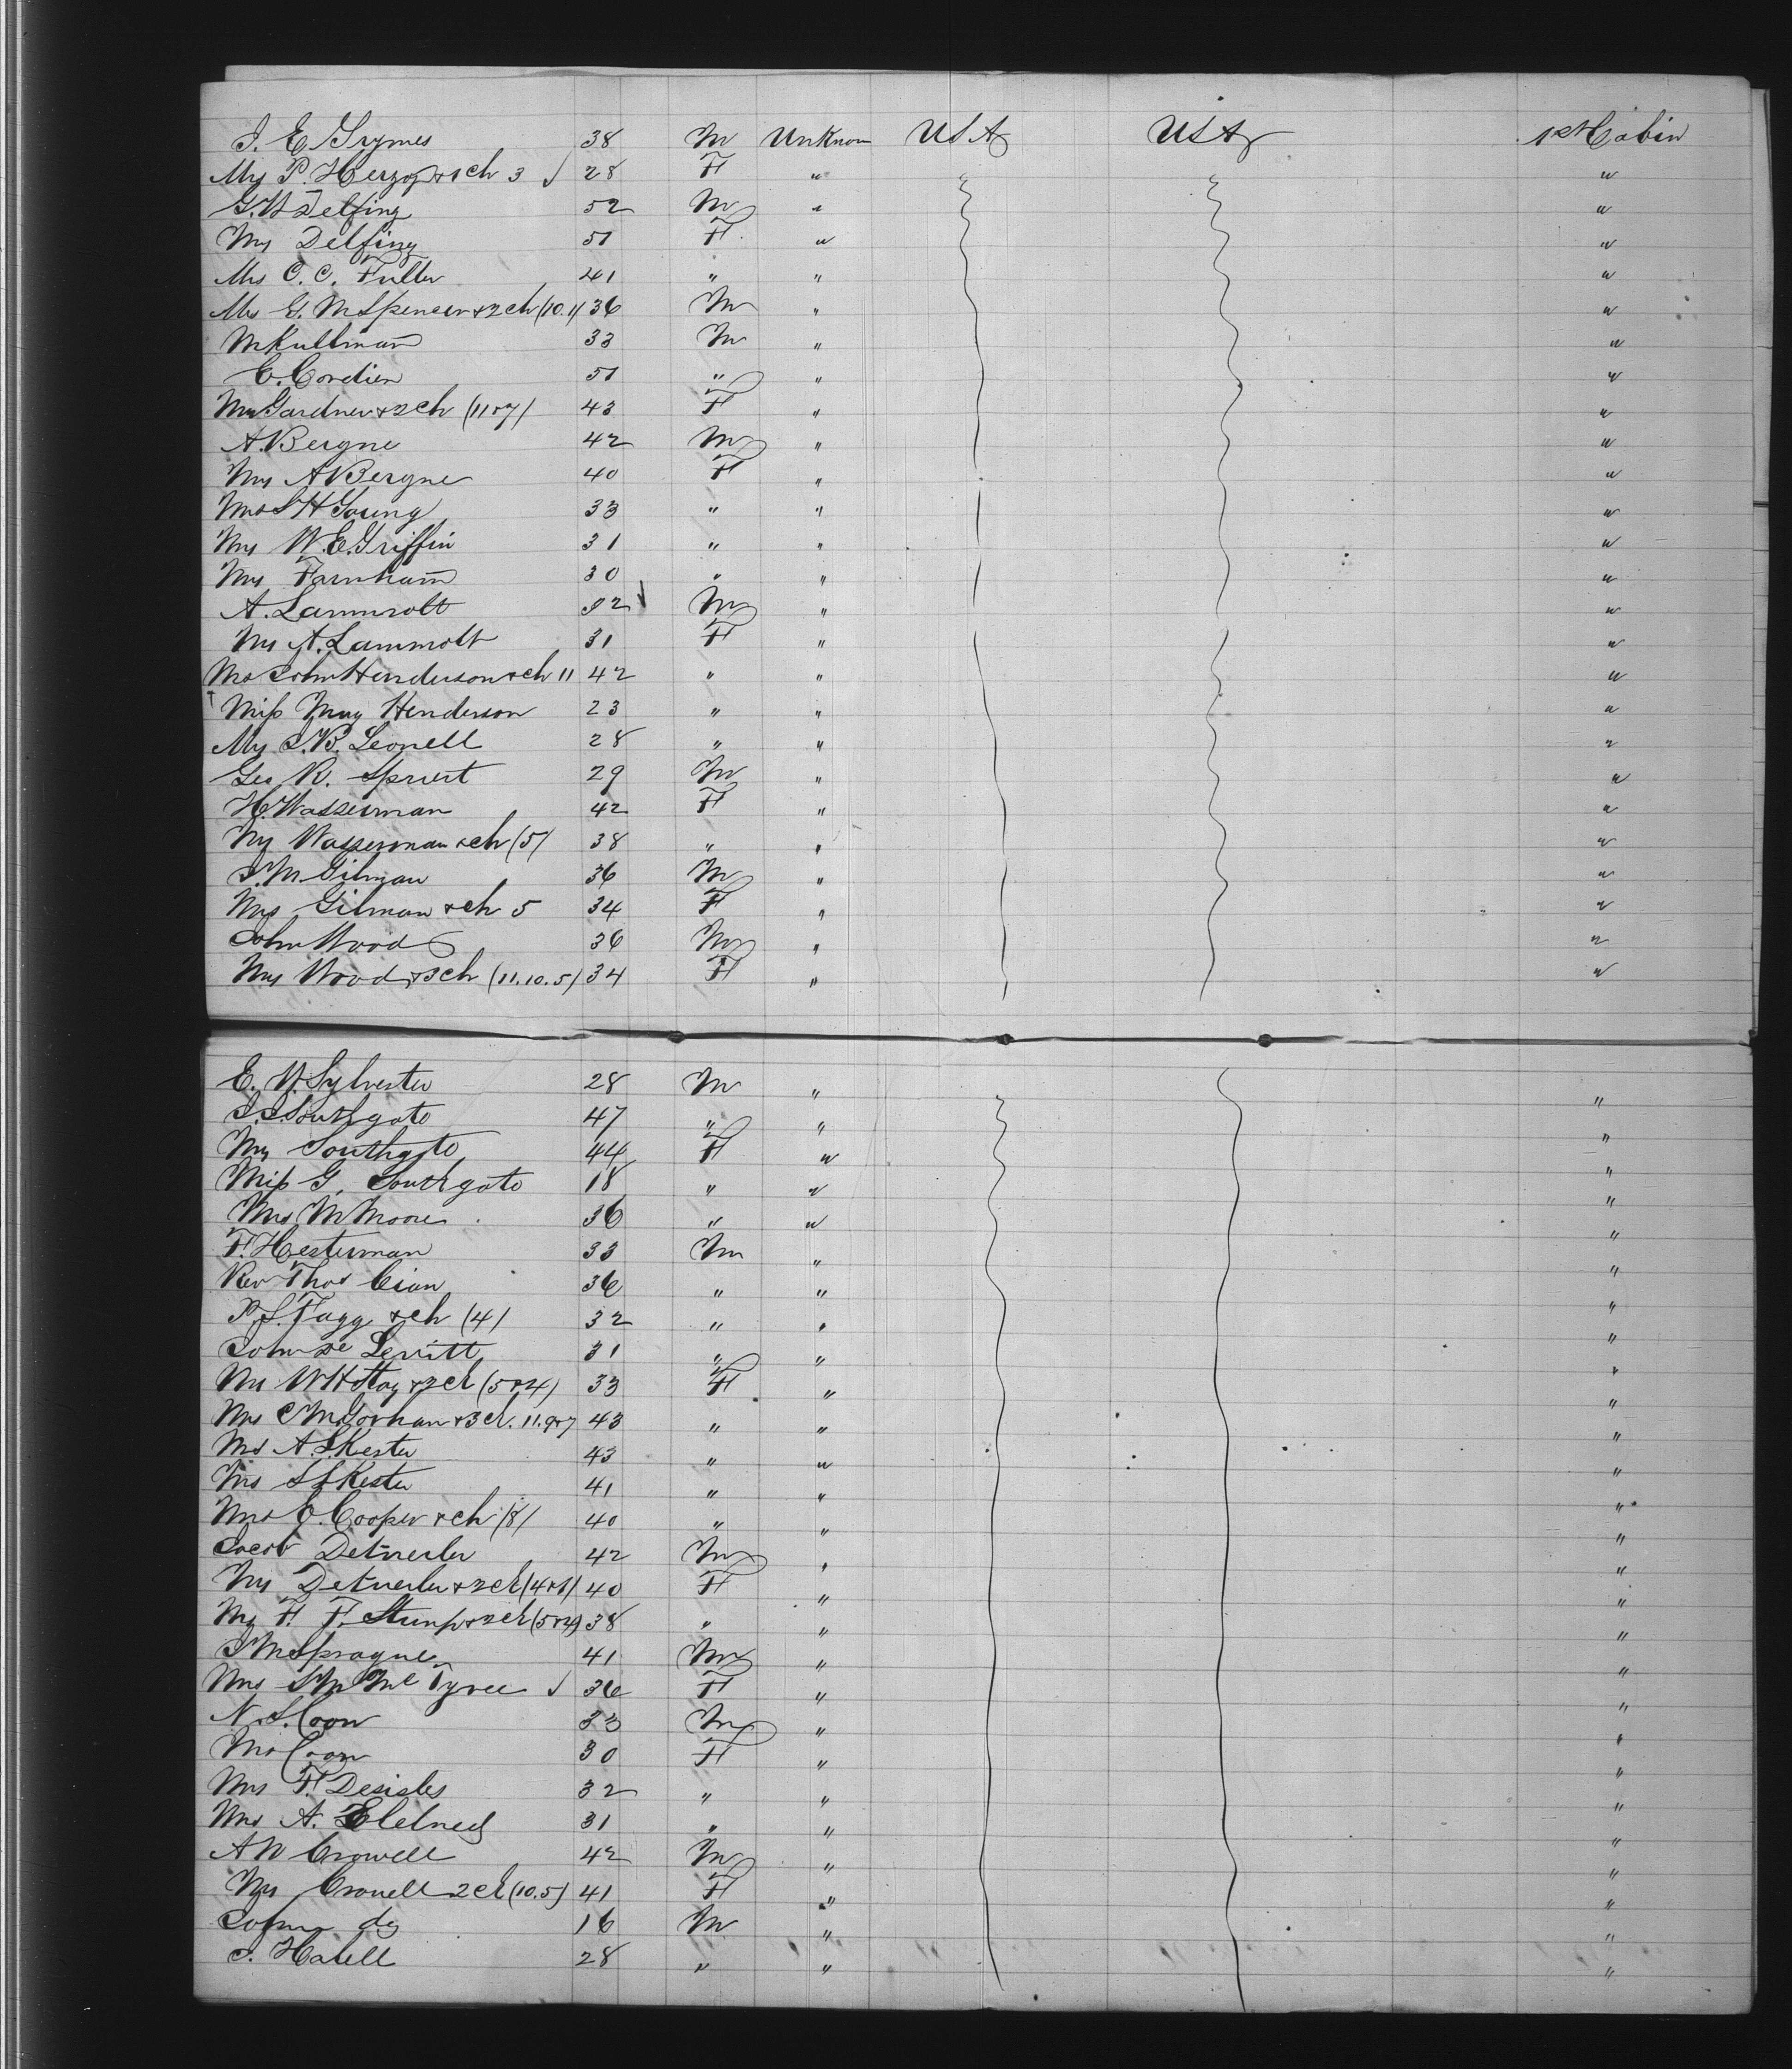 J. E. Grymes 38 M Unknow U S A U S A 1st Cabin
Mrs P. Herzog & ch 3 √ 28 F " "
G. W Delfing 52 M " "
Mrs Delfing 51 F " "
Mrs C. C. Fuller 41 " " "
Mrs G. M Spencer & 2 ch (10. 1) 36 M " "
M Kullman 33 M " "
E. Cordier 51 " " "
Mrs Gardner & 2 ch (11 & 7) 43 F " "
A. Bergne 42 M " "
Mrs A Bergne 40 F " "
Mrs S H Young 33 " " "
Mrs W. E. Griffin 31 " " "
Mrs Farnham 30 " " "
A. Lammott 32 M " "
Mrs A. Lammott 31 F " "
Mrs John Henderson & ch 11 42 " " "
Miss May Henderson 23 " " "
Mrs J. B. Leonell 28 " " "
Geo R. Spruert 29 M " "
H. Wasserman 42 F " "
Mrs Wasserman & ch (5) 38 " " "
J. M Gilman 36 M " "
Mrs Gilman & ch 5 34 F " "
John Wood 36 M " "
Mrs Wood & 3 ch (11. 10. 5) 34 F " "
E. W. Sylvester 28 M " "
J. S. Southgate 47 " " "
Mrs Southgate 44 F " "
Miss G. Southgate 18 " " "
Mrs M Moore 36 " " "
F. Hesterman 33 M " "
Rev Thos Cian 36 " " "
P. S. Fagg & ch (4) 32 " " "
John De Levitt 31 " " "
Mrs W H Hay & 2 ch (5 & 4) 33 F " "
Mrs C M Gorhan & 3 ch. 11. 9 & 7 43 " " "
Mrs A. S Kester 43 " " "
Mrs S S Kester 41 " " "
Mrs J. Cooper & ch (8) 40 " " "
Jacob Detweiler 42 M " "
Mrs Detweiler & 2 ch (4 & 1) 40 F " "
Mrs F. F. Stump & 2 ch (5 & 4) 38 " " "
J M Sprague 41 M " "
Mrs S M McTyree √ 36 F " "
N. S. Coon 33 M " "
Mrs Coon 30 F " "
Mrs F. Desisles 32 " " "
Mrs A. 31 " " "
A W Crowell 42 M " "
Mrs Crowell 2 ch (10. 5) 41 F " "
John do 16 M " "
J. Hatell 28 " " "